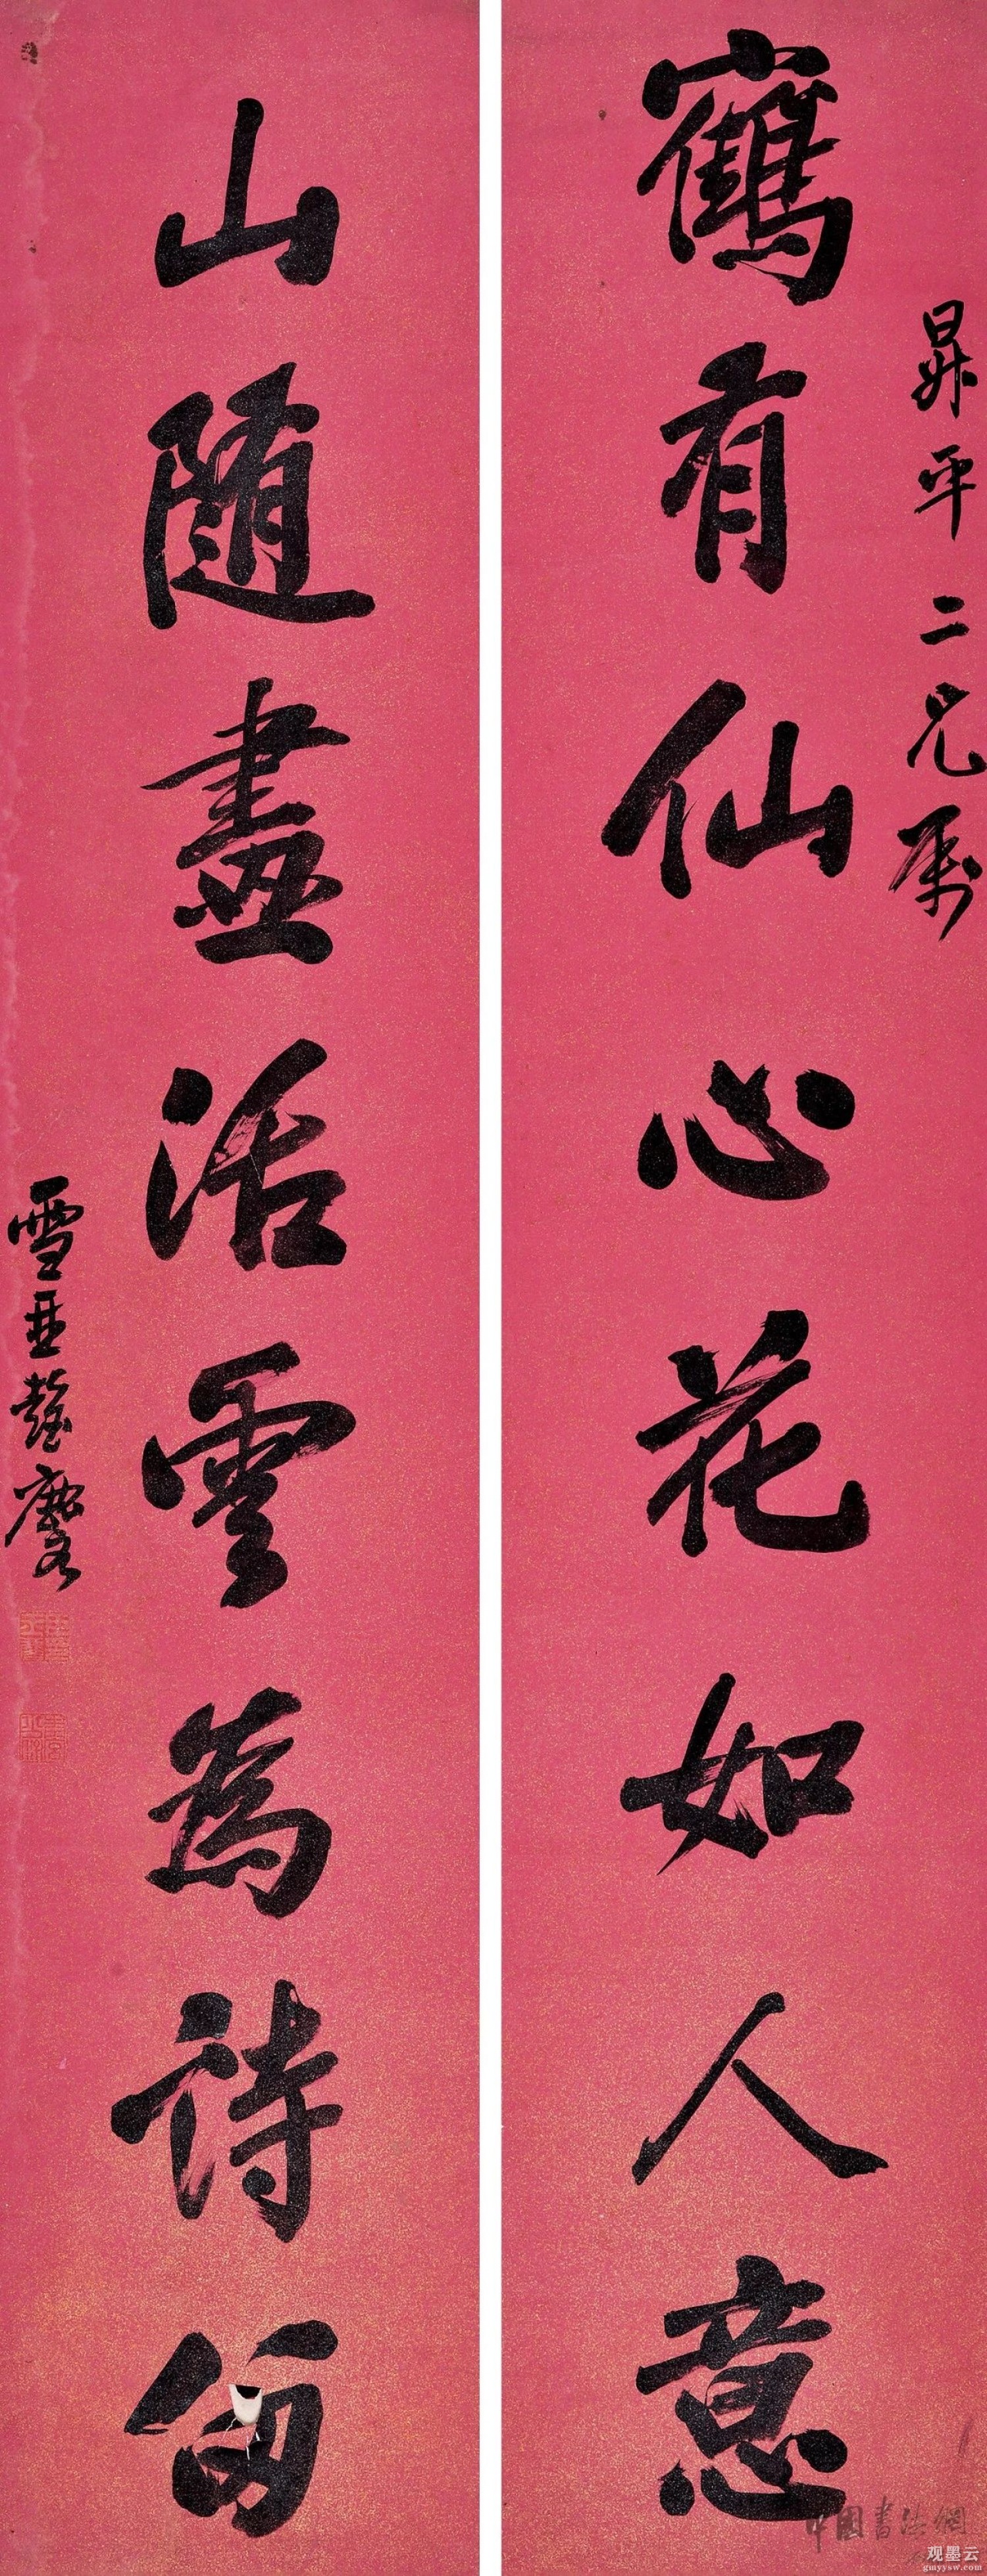 昇平二兄属
鶴有仙心花如人意
山随畫活雲為詩留
雪亞蔭麐
中國書法網
观墨云
gmyysw.com